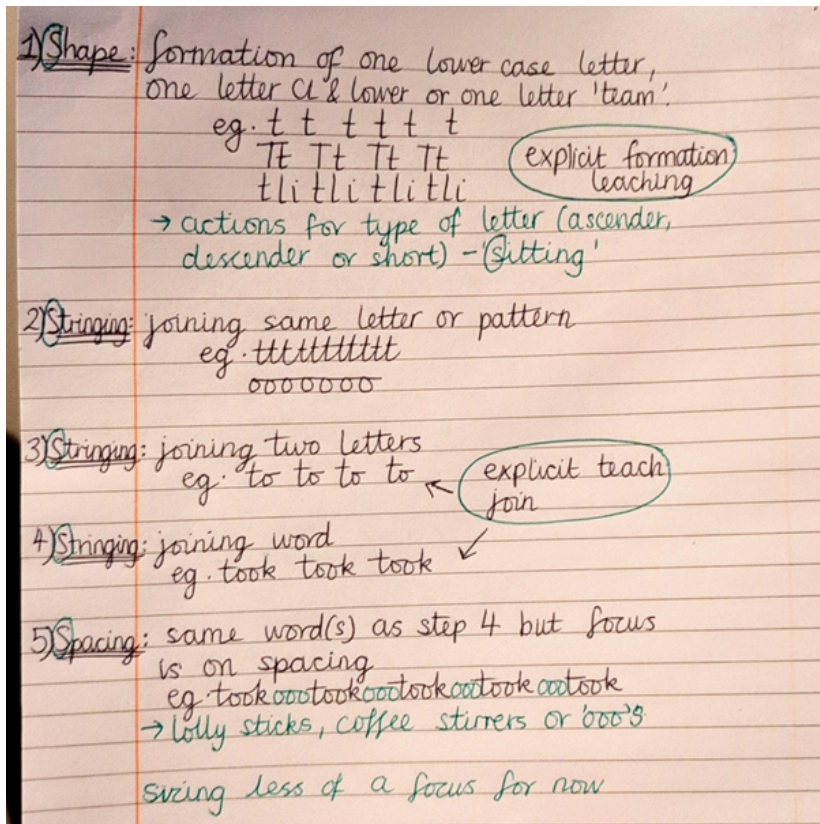 1) Shape: formation of one lower case letter,
one letter CL & lower or one letter 'team'.
eg. t t t t t t
Tt Tt Tt Tt
tli tli tli tli
explicit formation
teaching
→ actions for type of letter (ascender,
descender or short) - 'Sitting'
2) Stringing: joining same letter or pattern
eg. ttttttttttt
ooooooo
3) Stringing: joining two letters
eg. to to to to
explicit teach
join
4) Stringing: joining word
eg. took took took
5) Spacing: same word(s) as step 4 but focus
is on spacing
eg. tookoootookoootookoootookoootook
→ lolly sticks, coffee stirrers or 'ooo's
sizing less of a focus for now